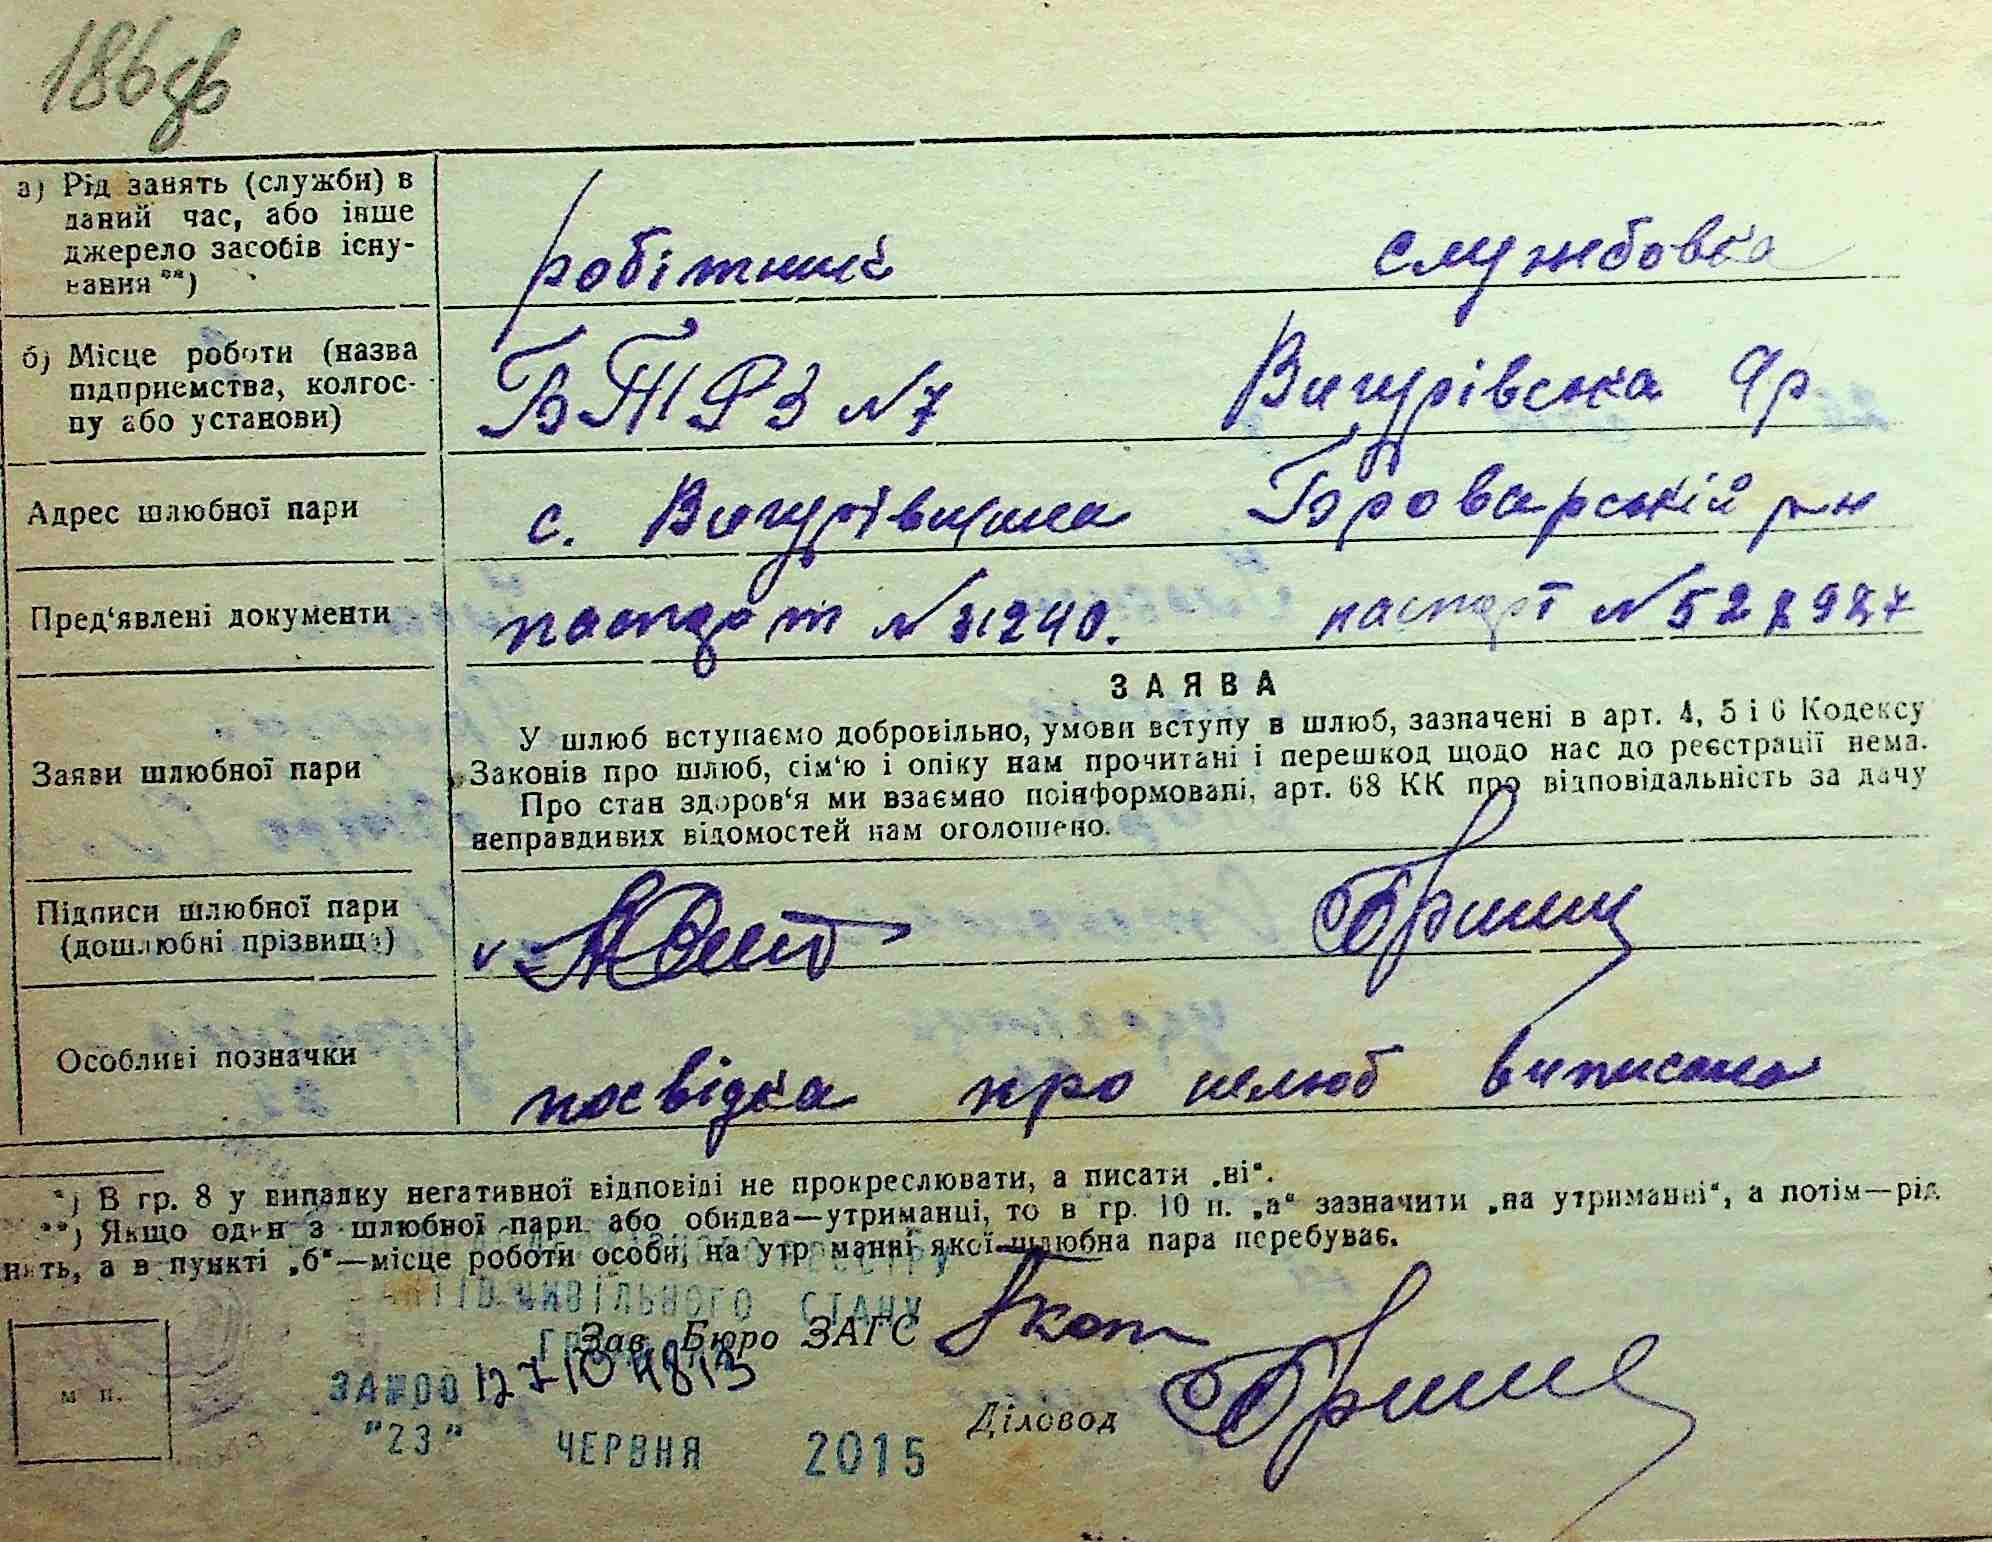 186 зв
а) Рід занять (служби) в
даний час, або інше
джерело засобів існу-
вання **)
робітник службовка
б) Місце роботи (назва
підприємства, колгос-
пу або установи)
БТРЗ №7 Вигурівська
Адрес шлюбної пари
с. Вигурівщина Броварській р-н
Пред‘явлені документи
паспорт № паспорт №
ЗАЯВА
У шлюб вступаємо добровільно, умови вступу в шлюб, зазначені в арт. 4, 5 і 6 Кодексу
Законів про шлюб, сім‘ю і опіку нам прочитані і перешкод щодо нас до реєстрації нема.
Про стан здоров‘я ми взаємно поінформовані, арт. 68 КК про відповідальність за дачу
неправдивих відомостей нам оголошено.
Заяви шлюбної пари
Підписи шлюбної пари
(дошлюбні прізвища)
Особливі позначки
посвідка про шлюб виписана
*) В гр. 8 у випадку негативної відповіді не прокреслювати, а писати „ні“.
**) Якщо один з шлюбної пари або обидва—утриманці, то в гр. 10 п. „а“ зазначити „на утриманні“, а потім—рід
а в пункті „б“—місце роботи особи, на утриманні якої шлюбна пара перебуває.
АКТІВ ЦИВІЛЬНОГО СТАНУ
Зав. Бюро ЗАГС
"23" ЧЕРВНЯ 2015
Діловод
м п.